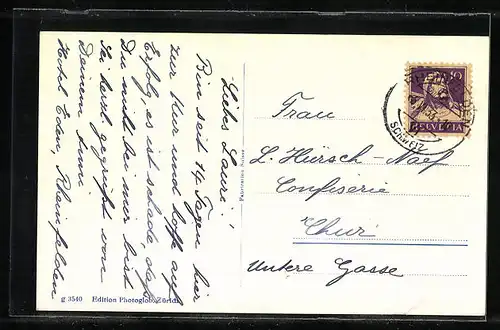 Liebs Lauri!
Bin seit 14 Tagen hier
zur Kur und hoffe auf
Erfolg, es ist schade daß
Du nicht bei mir bist
Sei herzl. gegrüßt von
Deinem
Hotel Eden, Rheinfelden
g 3540 Edition Photoglob, Zürich
Fabrication Suisse
10
HELVETIA
SCHWEIZ
Frau
L. Hürsch-Naef
Confiserie
Chur
Untere Gasse